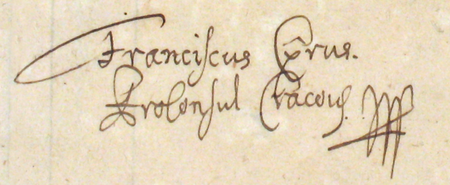 Franciscus Cyrus.
Proconsul Cracoũ.